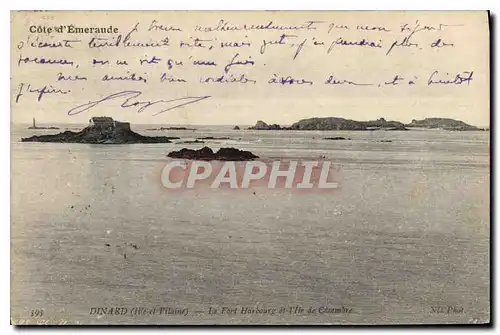 Côte d'Émeraude
je malheureusement que mon séjour
s'écoute terriblement vite, mais j'en prendrai plus des
vacances, on ne vit qu'une fois
mes amitiés bien cordiales à vous deux, et à bientôt
j'espère
CPARHPHIL
195
DINARD (Ille-et-Vilaine) — Le Fort Harbourg et l'Ile de Césembre
ND Phot.